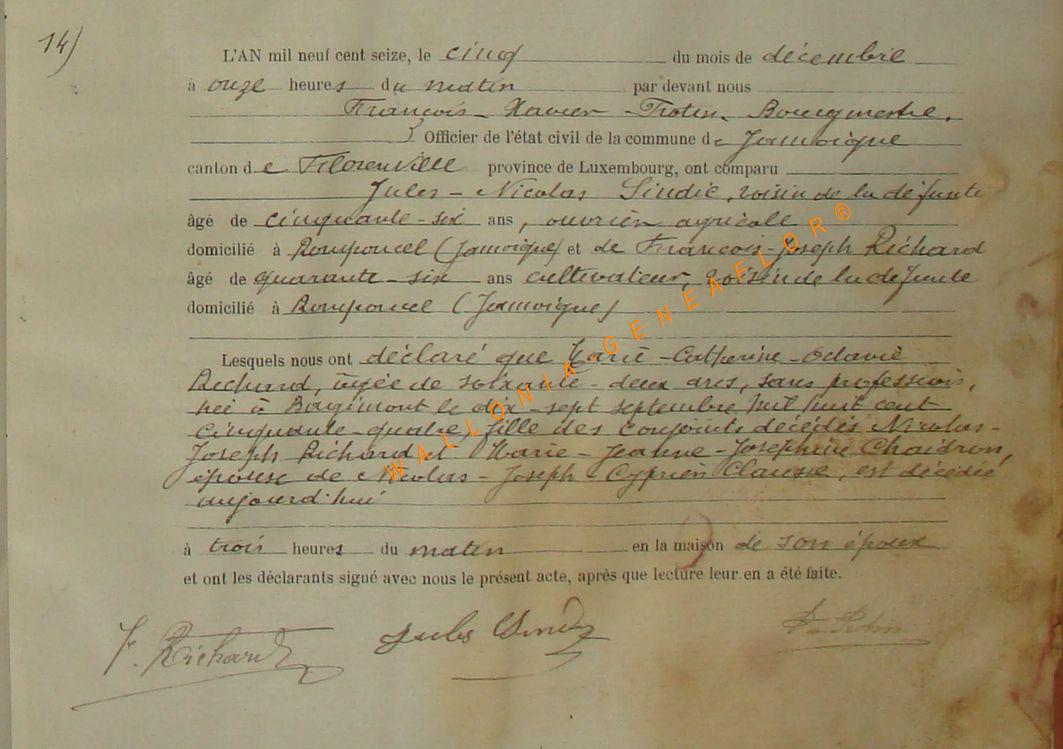 14)
L'AN mil neuf cent seize, le cinq du mois de décembre
à onze heures du matin par devant nous
François - Xavier - Protin, Bourgmestre,
Officier de l'état civil de la commune de Jamoigne
canton de Florenville province de Luxembourg, ont comparu
Jules - Nicolas Sindic, voisin de la défunte
âgé de cinquante-six ans, ouvrier agricole
domicilié à Romponcel (Jamoigne) et de François-Joseph Richard
âgé de quarante-six ans cultivateur, voisin de la défunte
domicilié à Romponcel (Jamoigne)
Lesquels nous ont déclaré que Marie-Catherine-Octavie
Richard, âgée de soixante-deux ans, sans profession,
née à Bagimont le dix-sept septembre mil huit cent
cinquante-quatre, fille des conjoints décédés Nicolas-
Joseph Richard et Marie-Jeanne-Josephine Chaidron,
épouse de Nicolas-Joseph-Cyprien Clausse, est décédée
aujourd'hui
à trois heures du matin en la maison de son époux
et ont les déclarants signé avec nous le présent acte, après que lecture leur en a été faite.
F. Richard Jules Sindic
WALLONIA GENEAFLOR®